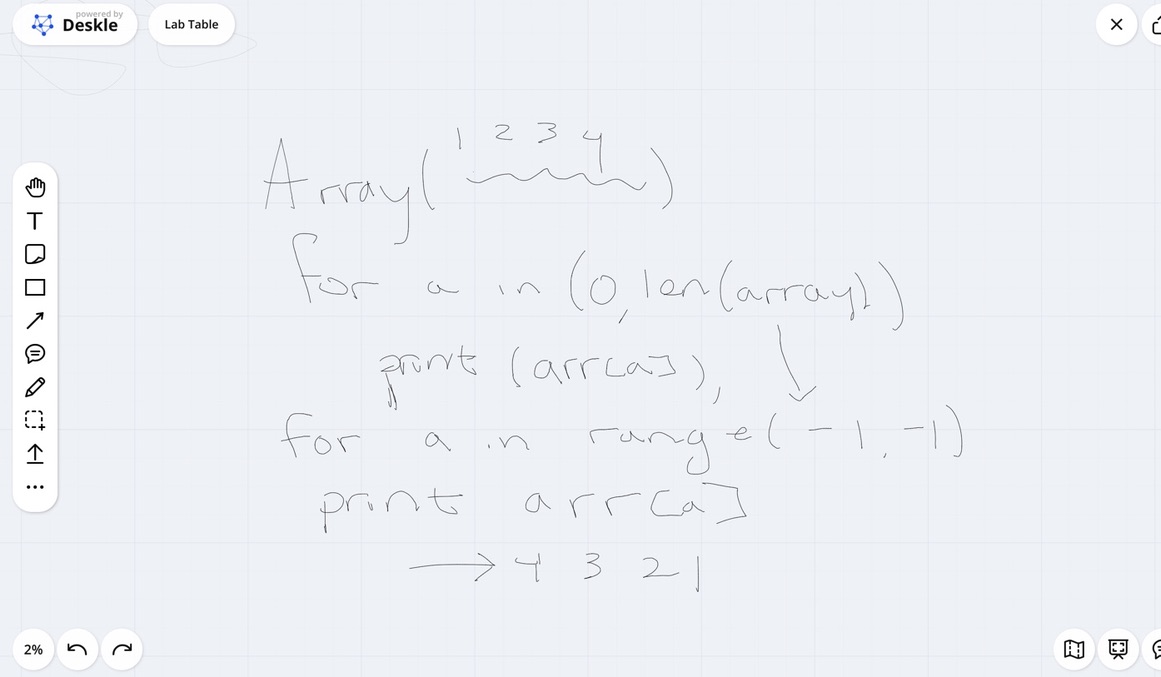 powered by
Deskle
Lab Table
1 2 3 4
Array( )
for a in (0, len(array))
print (arr[a]),
for a in range( -1, -1)
print arr[a]
→ 4 3 2 1
T
2%